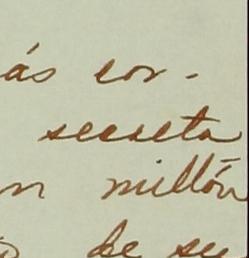 ás cor-
secreta
n millón
de su